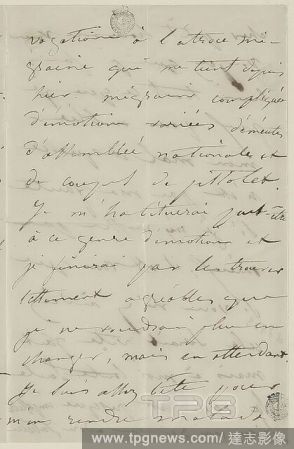 vagations à l'atroce mi-
graine qui me tient depuis
hier migraine compliquée
d'émotions variées d'émeutes
d'assemblée nationale et
de coups de pistolet.
Je m'habituerai peut-être
à ce genre d'émotions et
je finirai par les trouver
tellement agréables que
je ne voudrai plus en
changer, mais en attendant
je suis assez bête pour
m'en rendre malade
TPG
www.tpgnews.com / 達志影像